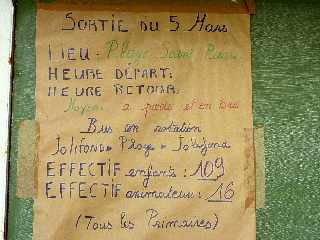 SORTIE DU 5 Mars
LIEU : Plage Saint Pierre
HEURE DÉPART:
HEURE RETOUR:
Moyen : a pieds et en bus
Bus en rotation
Jolifond - Plage - Jolifond
EFFECTIF enfants : 109
EFFECTIF animateur : 16
(Tous les Primaires)